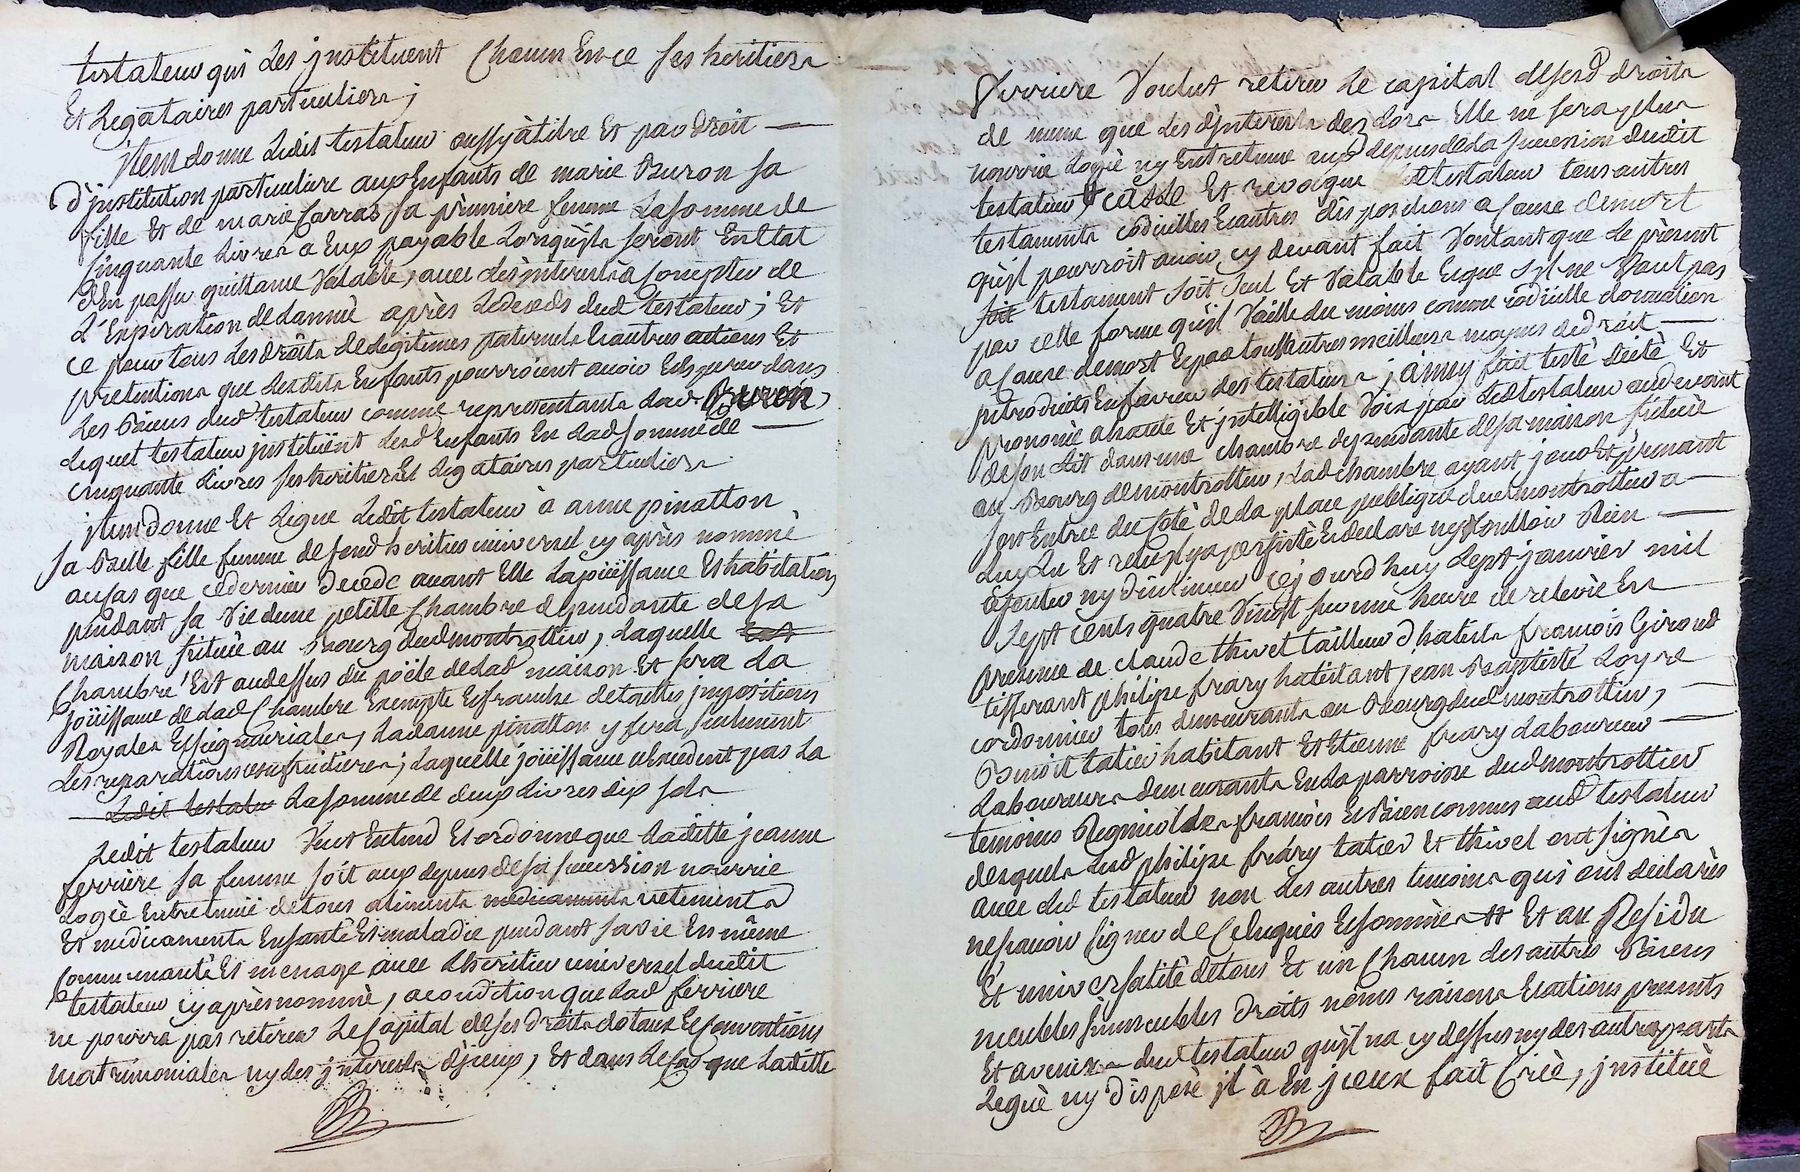 testateur qui les jnstituent Chacun En ce ses heritiers
Et Legataires particuliers ;
jtem donne Ledit testateur aussy à titre Et par droit —
d'jnstitution particuliere aux Enfants de marie Buron sa
fille Et de marie Carras sa premiere femme La somme de
Cinquante Livres a Eux payable Lorsqu'jls seront En Etat
d'En passer quittance Valable, avec les jnterests à Compter de
L'Expiration de Lannée après Le deceds dud testateur ; Et
ce pour tous Les droits de Legitimes paternels Et autres actions Et
pretentions que Lesdits Enfants pourroient avoir Et Esperer dans
Les Biens dud testateur comme representants Lad Buron,
Lequel testateur jnstituent Lesd Enfants En Lad somme de —
cinquante Livres ses heritiers Et Legataires particuliers
jtem donne Et Legue Ledit testateur à anne pinatton
sa Belle fille femme de sond heritier universel cy après nommé
au Cas que ce dernier decede avant Elle La jouissance Et habitation
pendant sa Vie d'une petitte Chambre dépendante de sa
maison scituée au Bourg dud montrottier, Laquelle Est
Chambre Est au dessus du poële de Lad maison Et sera La
joüissance de Lad Chambre Exempte Et franche de touttes jmpositions
Royales Et seigneuriales, Lad anne pinatton y fera seulement
Les reparations usufruitieres ; Laquelle joüissance n'Excedent pas La
Ledit testateur La somme de deux Livres dix sols
Ledit testateur Veut Entend Et ordonne que Laditte jeanne
ferriere sa femme soit aux depens de sa succession nourrie
Logée Entretenüe de tous aliments medicaments vetements
Et medicaments En santé Et maladie pendant sa vie En même
Communauté Et menage avec L'heritier universel dudit
testateur cy après nommé, a condition que Lad ferriere
ne pourra pas retirer Le Capital de ses droits dotaux Et Conventions
matrimoniales ny des jnterests d'jceux, Et dans Le Cas que Laditte
ferriere Voulut retirer Le capital de sesd droits
de meme que Les d'jnterests dez Lors Elle ne sera plus
nourrie Logée ny Entretenue aux depens de La succession dudit
testateur, casse Et revoque Led testateur tous autres
testaments codicilles Et autres dispositions a Cause de mort
qu'jl pourroit avoir cy devant fait Voulant que Le present
soit testament soit seul Et Valable Et que s'jl ne Vaut pas
par cette forme qu'jl Vaille du moins comme codicille donnation
a Cause de mort Et par tous autres meilleurs moyens de droit —
jntroduits En faveur des testateurs, ainsy fait testé dicté Et
prononcé a haute Et jntelligible Voix par Led testateur au devant
de son Lit dans une chambre dependante de sa maison scituée
au Bourg de montrottier, Lad chambre ayant jour Et prenant
son Entrée du Coté de La place publique dud montrottier a —
Luy Lu Et relu y a persisté Et declaré ny Vouloir Rien —
ajouter ny diminuer Cejourd'huy sept janvier mil
sept cents quatre Vingt sur une heure de relevée En
presence de claude thivet tailleur d'habits françois Giroud
tisserant philipe frary habitant jean Baptiste Loyre
cordonnier tous demeurants au Bourg dud montrottier,
Benoit tatier habitant Et Etienne frary Laboureur —
Laboureurs demeurants En La parroisse dud montrottier
temoins Regnicoles françois Et Bien connus aud testateur
desquels Led philipe frary tatier Et thivet ont signés
avec Led testateur non Les autres temoins qui ont declarés
ne sçavoir signer de Ce Enquis Et sommés # Et au Residu
Et universalité de tous Et un Chacun des autres Biens
meubles jmmeubles droits noms raisons Et actions presents
Et avenirs dud testateur qu'jl na cy dessus ny des autres parts
Legué ny disposé jl à En jceux fait Créé, jnstitué